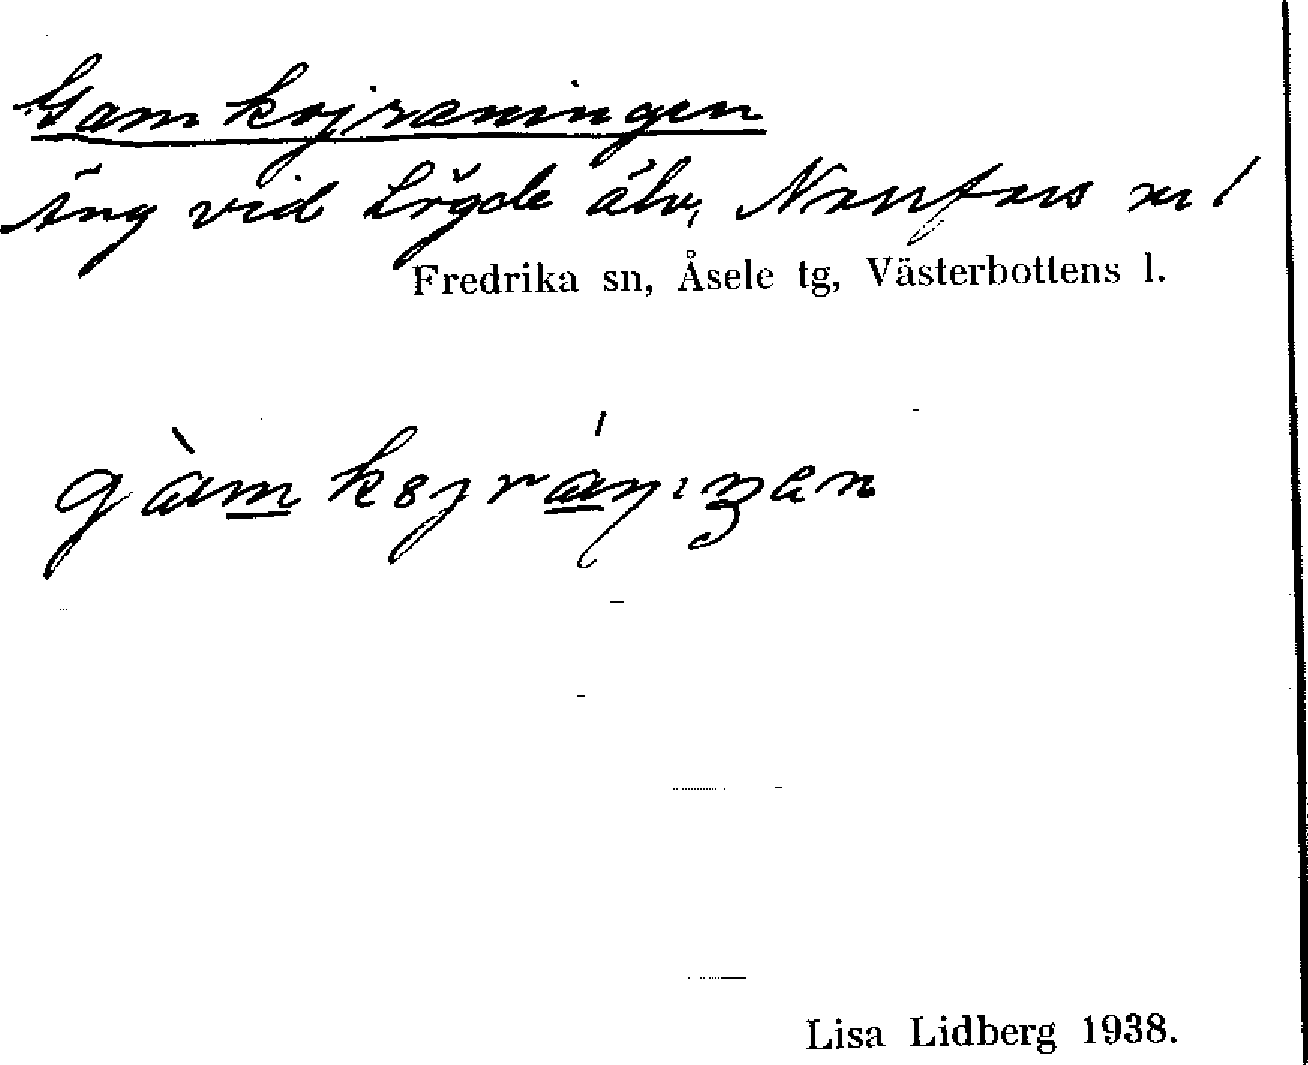 Gamkojraningen
Äng vid Lögde älv, Norrfors nr 1
Fredrika sn, Åsele tg, Västerbottens l.
Lisa Lidberg 1938.